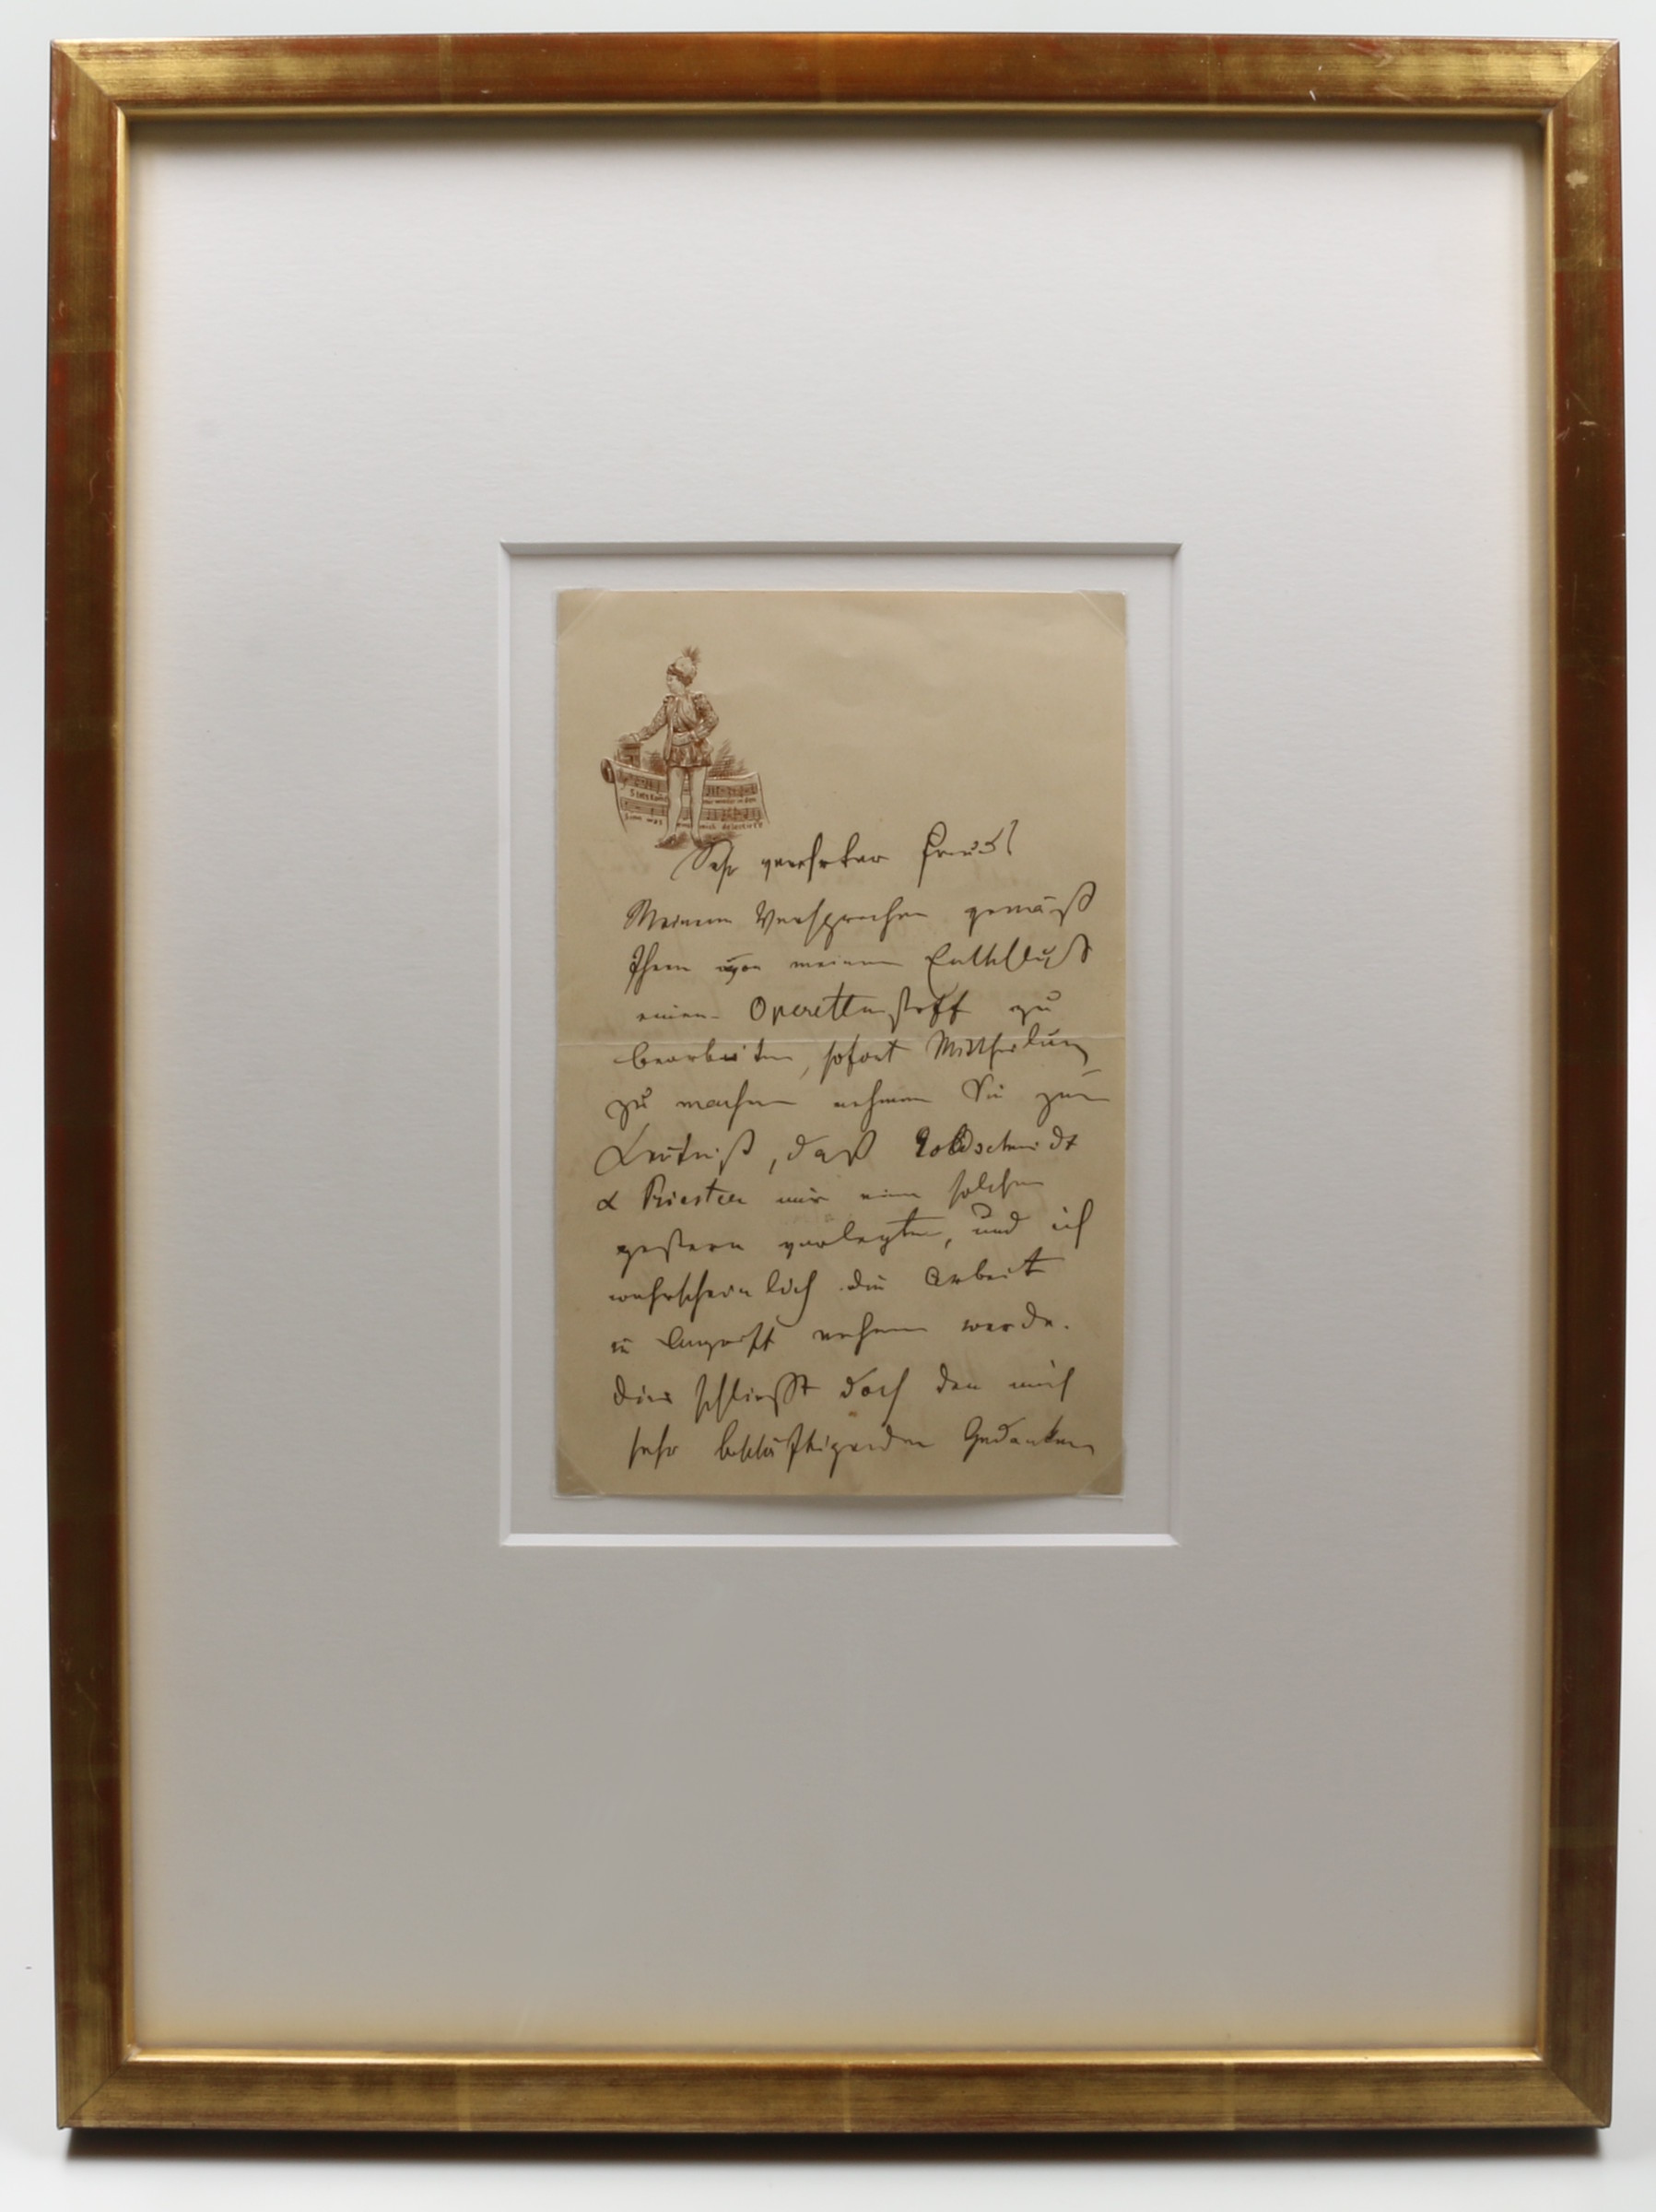 Stets kommt mir wieder in den
Sinn was mich
Sehr verehrter Freund!
Meinem Versprechen gemäß
Ihnen von meinem Entschluß
einen Operettenstoff zu
bearbeiten, sofort Mittheilung
zu machen nehmen Sie zur
Kentniß, daß Goldschmidt
& mir einen solchen
gestern vorlegten, und ich
wahrscheinlich die Arbeit
in Angriff nehmen werde.
Dies schließt doch den mich
sehr beschäftigenden Gedanken